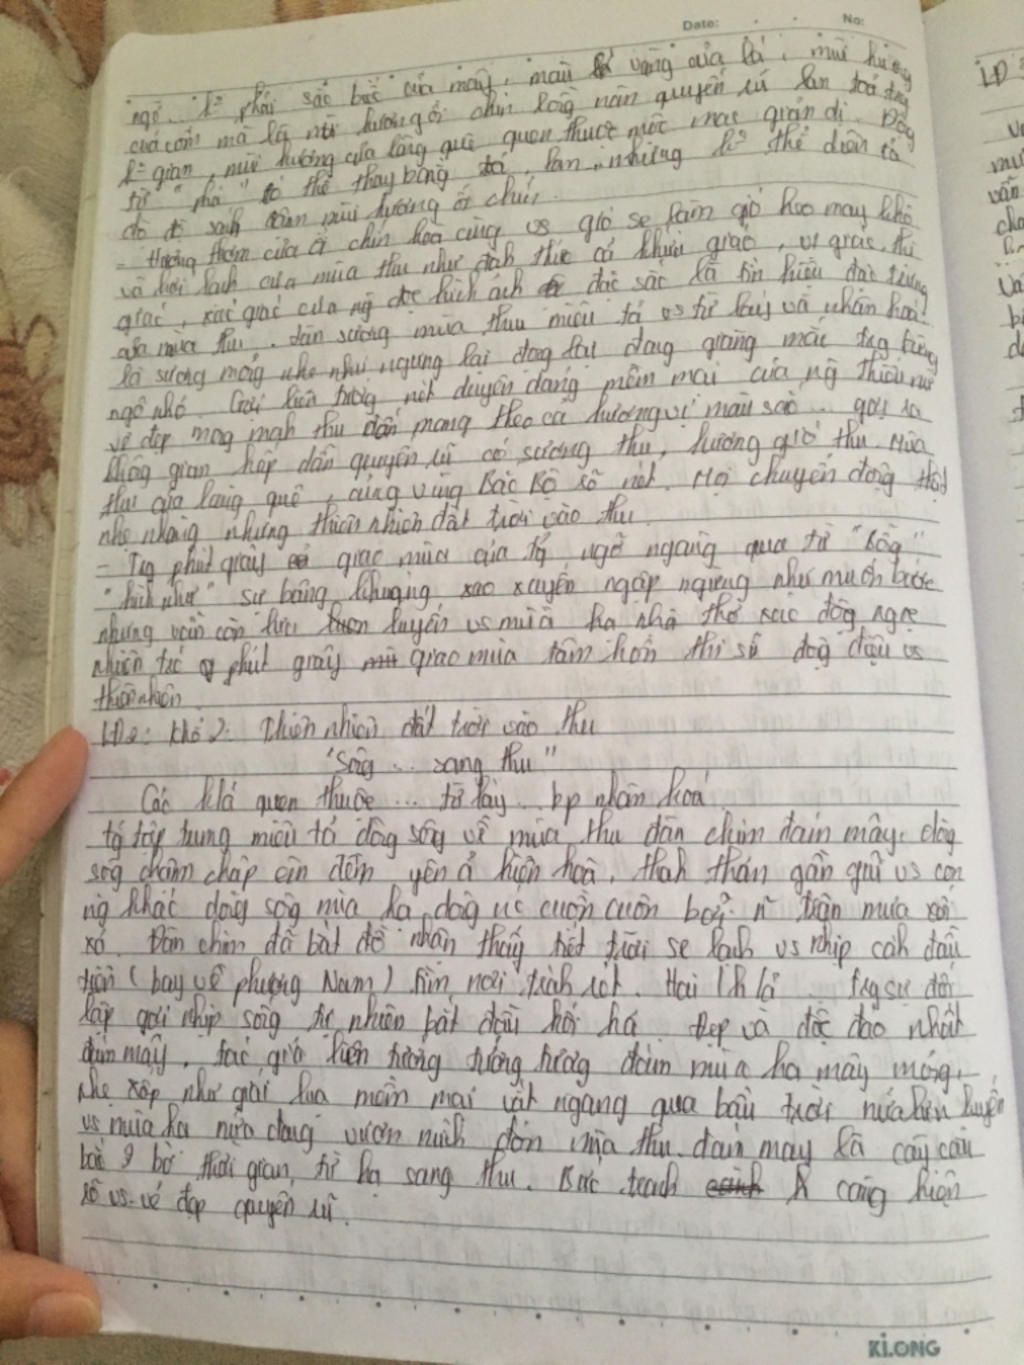 Date: No:
ngõ. k° phải sắc bức của mây, màu vàng của lá, mùi hương
của cốm mà là mùi hương ổi chín nồng nàn quyến rũ lan toả trg
k° gian, mùi hương của làng quê quen thuộc mộc mạc giản di. Động
từ "phả" có thể thay bằng toả, lan, nhưng k° thể diễn tả
độ đậm mùi hương ổi chín.
- Hương thơm của ổi chín hoà cùng vs gió se làm gió heo may khô
và hơi lạnh của mùa thu như đánh thức cả khứu giác, vị giác, thị
giác, xúc giác của ng đọc hình ảnh đặc sắc là tín hiệu đặc trưng
của mùa thu. làn sương mùa thu miêu tả vs từ láy và nhân hoá
là sương mỏng nhẹ như ngưng lại đang giăng mắc trg từng
ngõ nhỏ. Gợi liên tưởng nét duyên dáng mềm mại của ng thiếu nữ
vẻ đẹp mong manh thu đến mang theo cả hương vị màu sắc ... gợi ra
không gian hấp dẫn quyến rũ có sương thu, hương gió thu. Mùa
thu của làng quê, cùng vùng Bắc Bộ rõ nét. Mọi chuyển động thật
nhẹ nhàng nhưng thiên nhiên đất trời vào thu.
- Trg phút giây giao mùa của tg ngỡ ngàng qua từ "Bỗng"
"hình như" sự bâng khuâng xao xuyến ngập ngừng như muốn bước
nhưng vẫn còn lưu luyến vs mùa hạ nhà thơ xúc động ngạc
nhiên từ phút giây giao mùa tâm hồn thi sĩ đồng điệu vs
thiên nhiên.
LĐ2: Khổ 2: Thiên nhiên đất trời vào thu
"Sông ... sang thu"
Các h/á quen thuộc ... từ láy .. bp nhân hoá
tg tập trung miêu tả dòng sông về mùa thu đàn chim đám mây. dòng
sông chầm chập êm đềm yên ả hiền hoà, thah thản gần gũi vs con
ng khác dòng sông mùa hạ, dòng nc cuồn cuộn bởi n~ trận mưa xối
xả. Đàn chim đã bắt đầu nhận thấy tiết trời se lạnh vs nhịp cánh đầu
tiên (bay về phương Nam) tìm nơi tránh rét. Hai h/ả trg sự đối
lập gợi nhịp sống tự nhiên bắt đầu hối hả. Đẹp và độc đáo nhất
đám mây, tác giả liên tưởng tưởng tượng đám mùa hạ mây mỏng,
nhẹ xốp như giải lụa mềm mại vắt ngang qua bầu trời nửa lưu luyến
vs mùa hạ nửa đang vươn mình đón mùa thu. đám mây là cây cầu
bắc bờ thời gian, từ hạ sang thu. Bức tranh càng hiện
rõ vs vẻ đẹp quyến rũ.
KLONG
LĐ